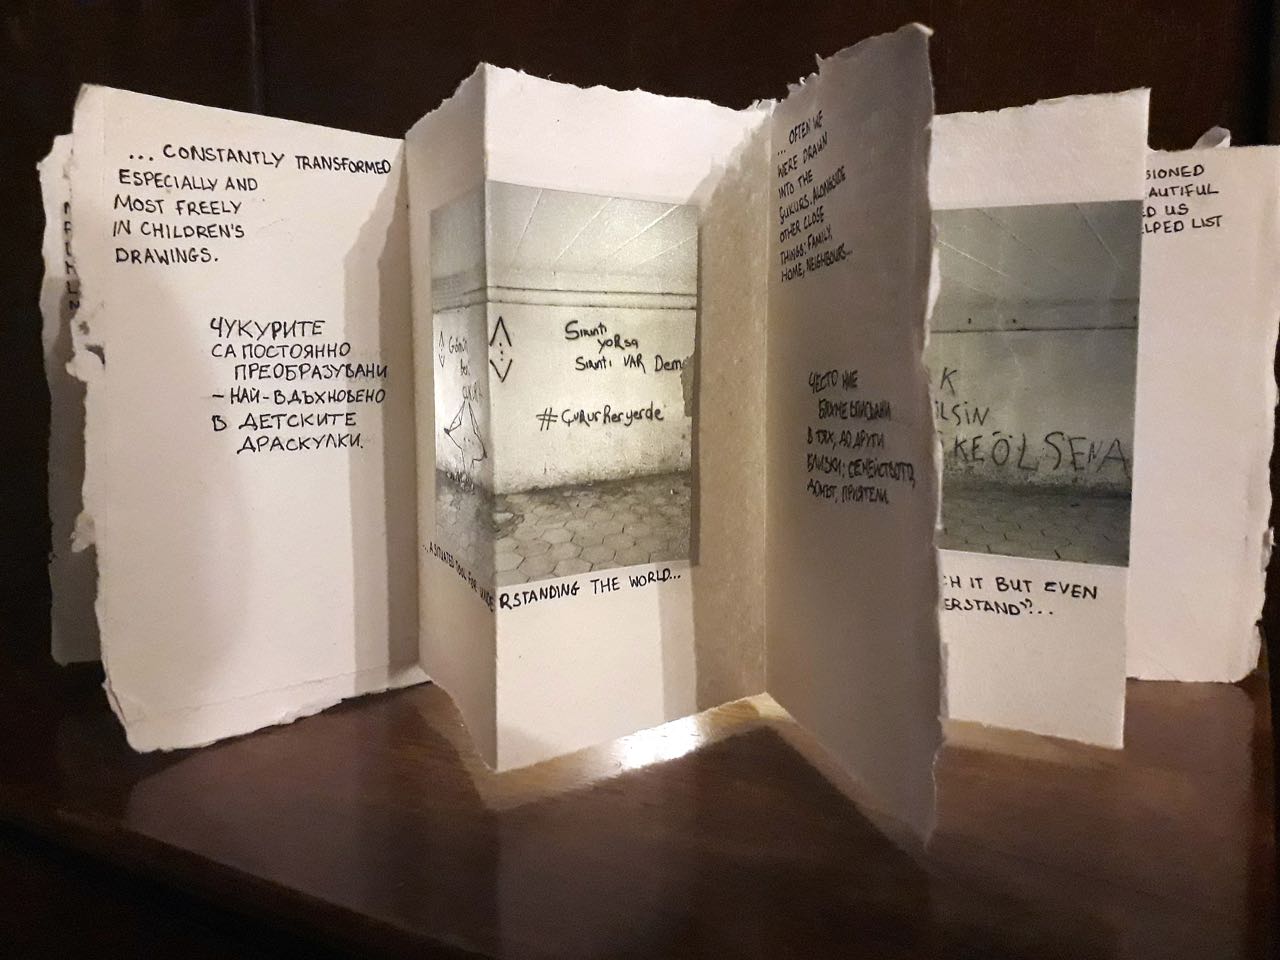 ... CONSTANTLY TRANSFORMED
ESPECIALLY AND
MOST FREELY
IN CHILDREN'S
DRAWINGS.
ЧУКУРИТЕ
СА ПОСТОЯННО
ПРЕОБРАЗУВАНИ
– НАЙ-ВДЪХНОВЕНО
В ДЕТСКИТЕ
ДРАСКУЛКИ.
Sırıntı
yoRsa
Sırıntı VAR Dem
#ÇuKurHeryerde
... A SITUATED TOOL FOR UNDERSTANDING THE WORLD...
... OFTEN WE
WERE DRAWN
INTO THE
ÇUKURS. ALONGSIDE
OTHER CLOSE
THINGS: FAMILY,
HOME, NEIGHBOURS...
ЧЕСТО НИЕ
БЯХМЕ ВПИСВАНИ
В ТЯХ, ДО ДРУГИ
БЛИЗКИ: СЕМЕЙСТВОТО,
ДОМЪТ, ПРИЯТЕЛИ.
K
İLSİN
KEÖLSENA
CH IT BUT EVEN
ERSTAND"?...
SIONED
AUTIFUL
ED US
LPED LIST